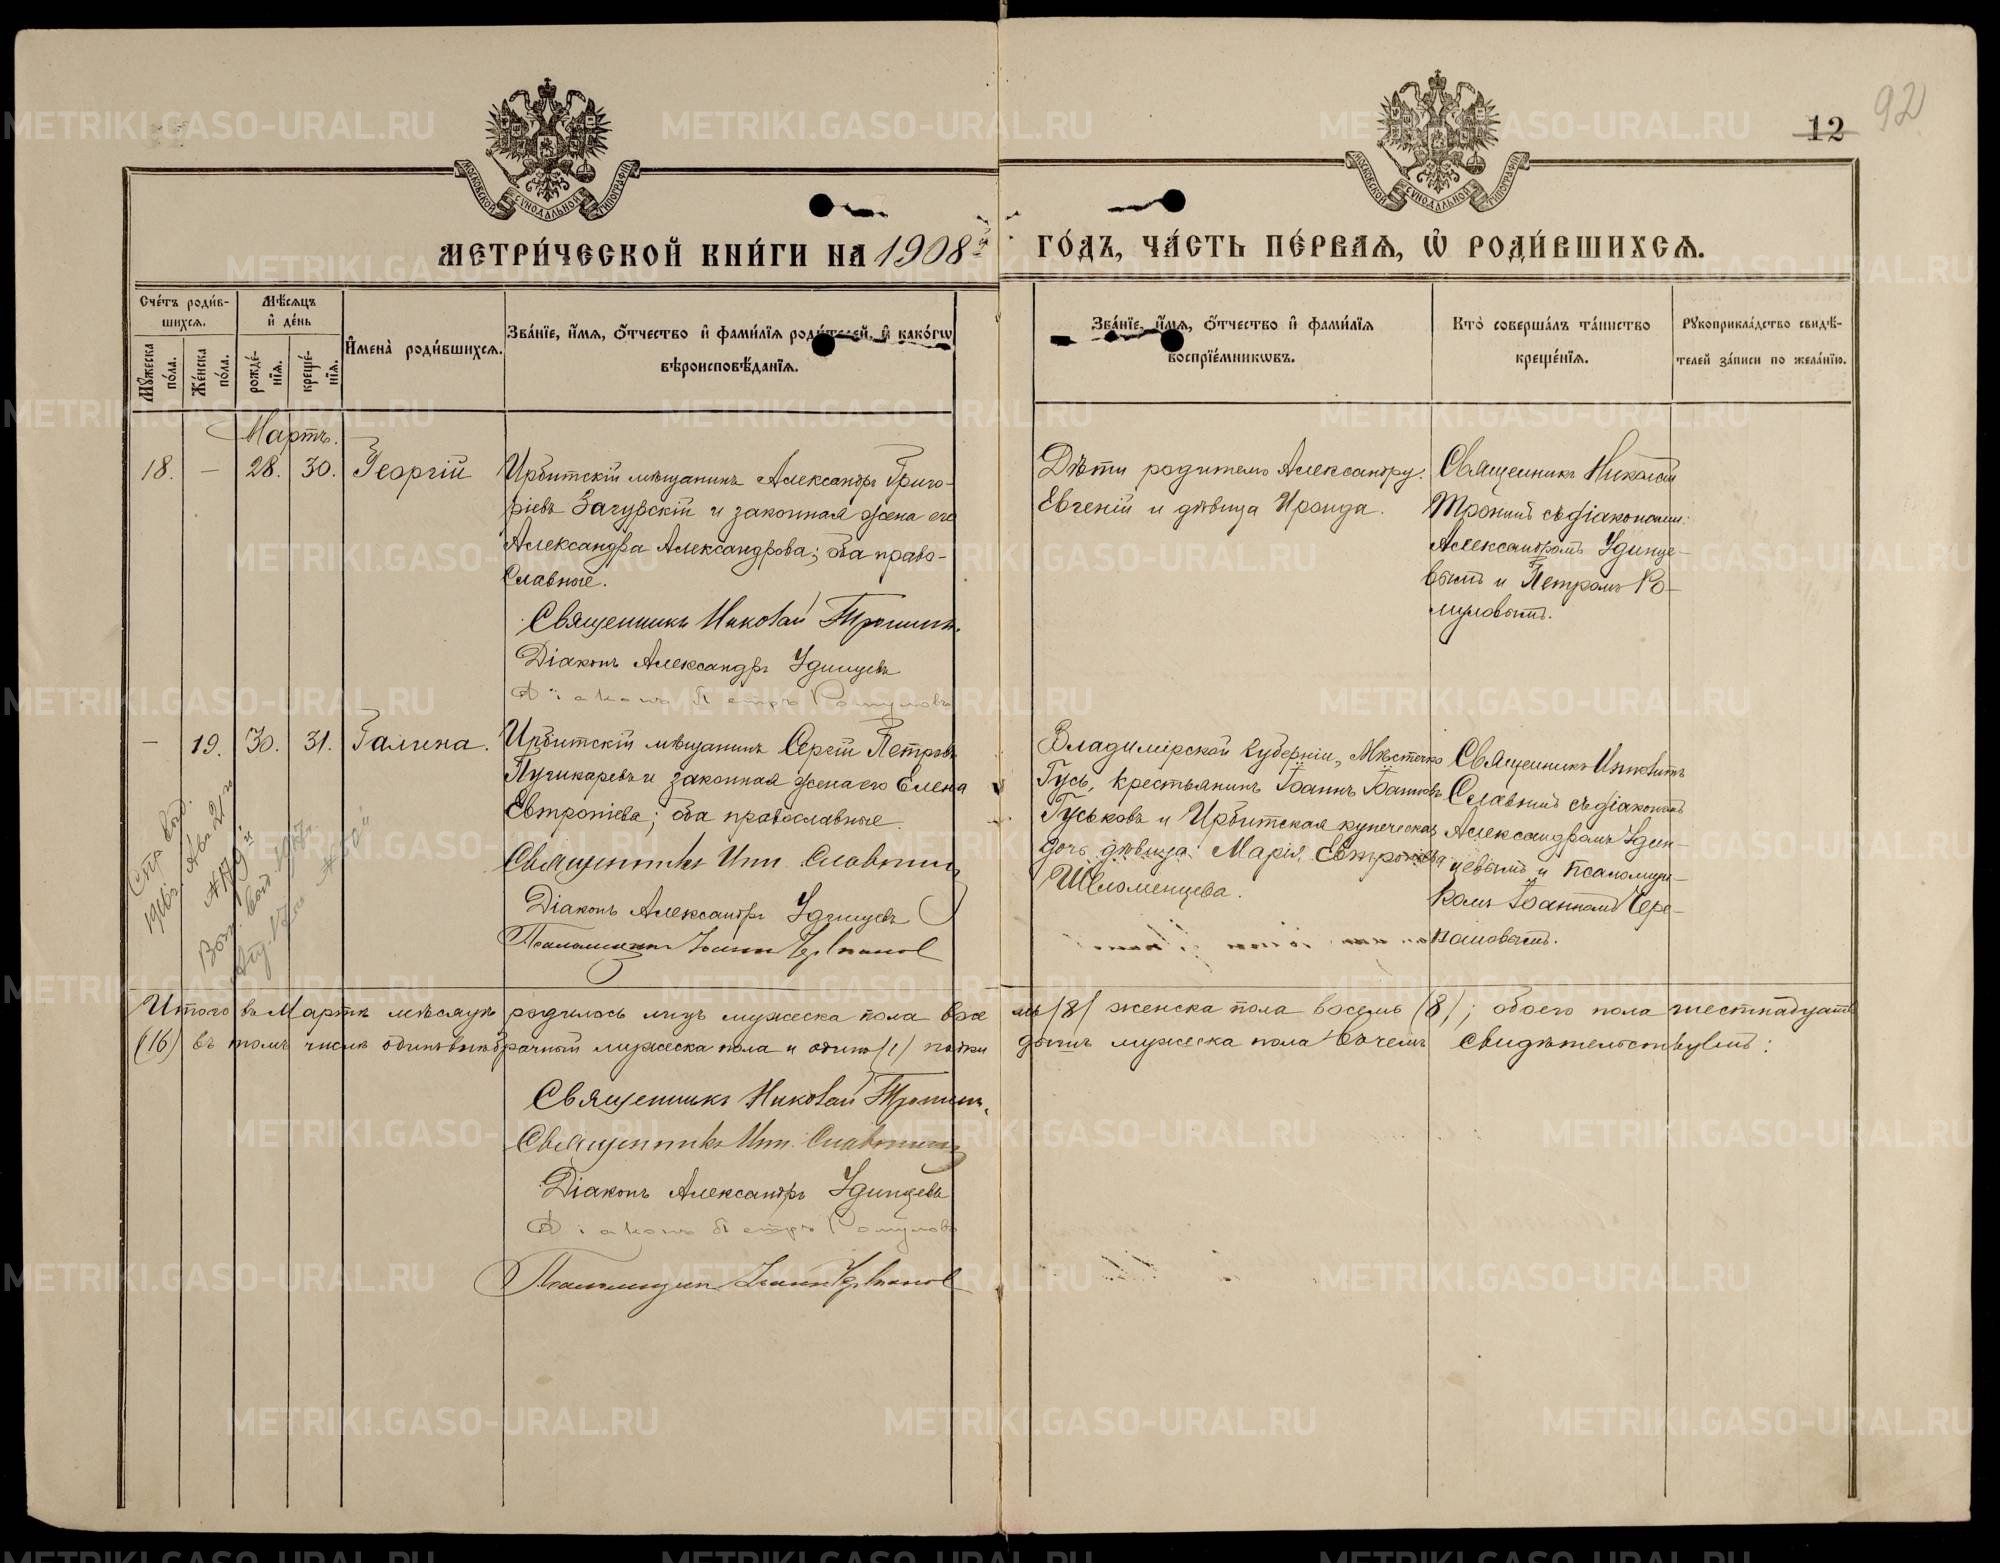 92
12
МОСКОВСКОЙ СѴНОДАЛЬНОЙ ТИПОГРАФІИ
МОСКОВСКОЙ СѴНОДАЛЬНОЙ ТИПОГРАФІИ
МЕТРИ́ЧЕСКОЙ КНИ́ГИ НА 1908й ГО́ДЪ, ЧА́СТЬ ПЕ́РВАѦ, Ѽ РОДИ́ВШИХСѦ.
Сче́тъ роди́в-
шихсѧ.
Мꙋ́жеска
по́ла.
Же́нска
по́ла.
Мѣ́сѧцъ
и҆ де́нь
рожде́-
нїѧ.
креще́-
нїѧ.
И҆мена̀ роди́вшихсѧ.
Зва́нїе, и҆́мѧ, ѻ҆́тчество и҆ фами́лїѧ роди́телей, и҆ како́гѡ
вѣроисповѣ́данїѧ.
Зва́нїе, и҆́мѧ, ѻ҆́тчество и҆ фами́лїѧ
воспрїе́мникѡвъ.
Кто̀ соверша́лъ та́инство
креще́нїѧ.
Рꙋкоприкла́дство свидѣ́-
телей за́писи по жела́нїю.
Мартъ.
18. — 28. 30. Георгій
Ирбитскій мѣщанинъ Александръ Григо-
ріевъ Загурскій и законная жена его
Александра Александрова; оба право-
славные.
Священникъ Николай Тронинъ.
Діаконъ Александръ Удинцевъ
Діаконъ Петръ Ромуловъ
Дѣти родителю Александру:
Евгеній и дѣвица Ираида.
Священникъ Николай
Тронинъ съ діаконами:
Александромъ Удинце-
вымъ и Петромъ Ро-
муловымъ.
— 19. 30. 31. Галина.
Ирбитскій мѣщанинъ Сергій Петровъ
Пушкаревъ и законная жена его Елена
Евтропіева; оба православные.
Священникъ Славнинъ
Діаконъ Александръ Удинцевъ
Псаломщикъ Іоаннъ Черпанов
Владимірской губерніи, Мѣстечко
Гусь, крестьянинъ Іоаннъ Іоанновъ
Гуськовъ и Ирбитская купеческая
дочь дѣвица Марія Евтропіева
Шеломенцева.
Священникъ
Славнинъ съ діакономъ
Александромъ Удин-
цевымъ и псаломщи-
комъ Іоанномъ Чере-
пановымъ.
Итого въ Мартѣ мѣсяцѣ родилось лицъ мужеска пола восемь (8) женска пола восемь (8); обоего пола шестнадцать
(16) въ томъ числѣ мужеска пола и одинъ (1) мужеска пола. Въ чемъ свидѣтельствуемъ:
Священникъ Николай Тронинъ.
Священникъ Славнинъ
Діаконъ Александръ Удинцевъ
Діаконъ Петръ Ромуловъ
Псаломщикъ Іоаннъ Черпанов
METRIKI.GASO-URAL.RU